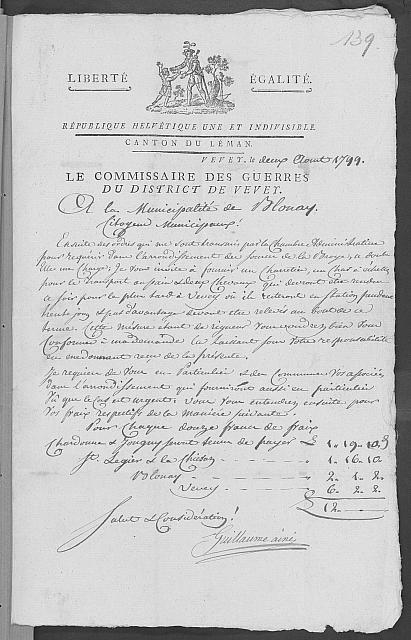 139
LIBERTÉ ÉGALITÉ.
RÉPUBLIQUE HELVÉTIQUE UNE ET INDIVISIBLE.
CANTON DU LÉMAN.
VEVEY, le deux Aout 1799.
LE COMMISSAIRE DES GUERRES
DU DISTRICT DE VEVEY.
A la Municipalité de Blonay.
Citoyens Municipaux!
Ensuite des ordres qui me sont transmis par la Chambre Administrative
pour requérir dans l'arrondissement
Je vous invite à fournir un Charretier, un Char à échelles
pour le Transport du pain & deux Chevaux qui devront être rendus
ce soir pour le plus tard à Vevey où ils resteront en station pendant
huit jours & pas davantage devant être relevés au bout de ce
terme. Cette mesure étant de rigueur Vous voudrez bien Vous
Conformer à ma demande la laissant sous Votre responsabilité
en me donnant recu de la présente.
Je requiers de Vous en Particulier & des Communes Vos associées
dans l'arrondissement qui fourniront aussi en particulier
Vu que le Cas est urgent; Vous Vous entendrez ensuite pour
Vos frais respectifs de la manière suivante.
Pour Chaque douze francs de frais
Chardonne & Jongny sont tenus de payer 1. 19. 10.
St Legier & la Chiesaz 1. 16. 10
Blonay 2. 1. 2
Vevey 6. 2. 2.
12.
Salut & Considération!
Guillaume ainé